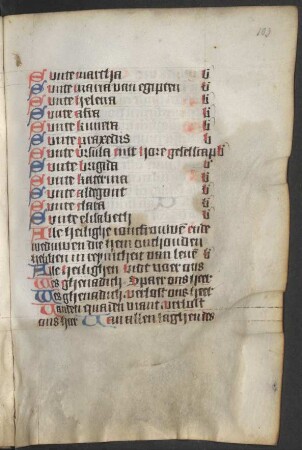 103
Sunte martha b
Sunte maria van egipten b
Sunte helena b
Sunte afra b
Sunte b
Sunte praxedis b
Sunte ursula mit hore geselscap b
Sunte brigida b
Sunte katerina b
Sunte aldegont b
Sunte clara b
Sunte elisabeth b
Alle heilighe ioncfrouwen ende
weduwen die
in reynicheit van leven b
Alle heilighen bidt voer ons
Wes ghenadich Spaer ons here
Wes ghenadich verlost ons here
Vanden quaden viant verlost
ons here Van allen